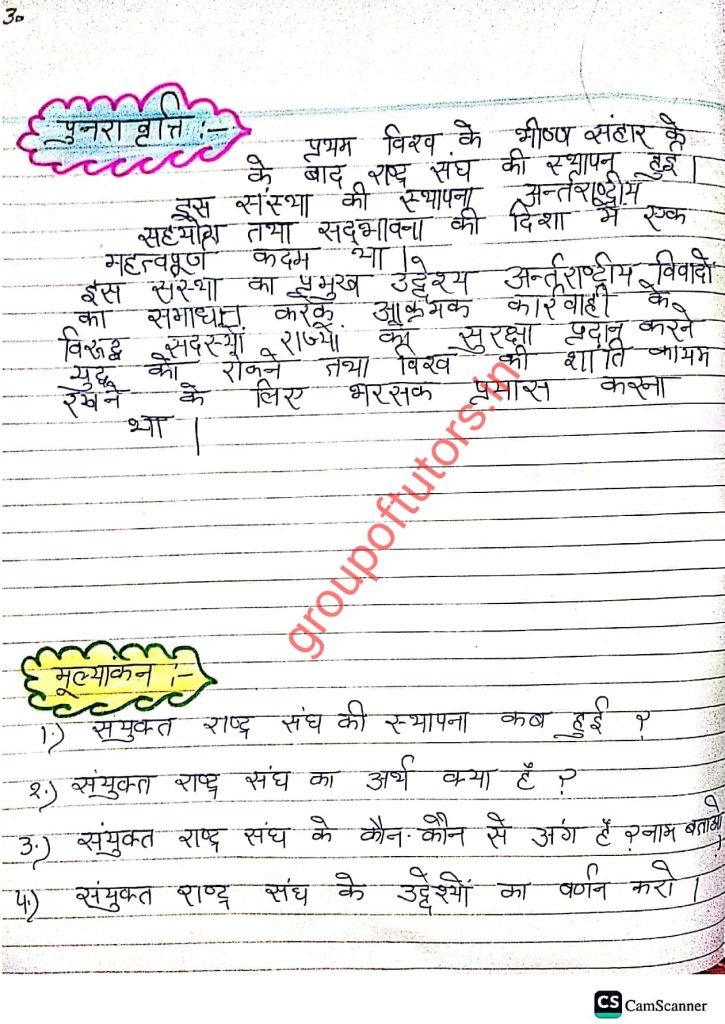 30
पुनरावृत्ति :-
प्रथम विश्व के भीषण संहार के
के बाद राष्ट्र संघ की स्थापन हुई।
इस संस्था की स्थापना अर्न्तराष्ट्रीय
सहयोग तथा सद्भावना की दिशा में एक
महत्वपूर्ण कदम था।
इस संस्था का प्रमुख उद्देश्य अर्न्तराष्ट्रीय विवादों
का समाधान करके आक्रमक कार्रवाही के
विरुद्ध सदस्यों राज्यों को सुरक्षा प्रदान करने
युद्ध को रोकने तथा विश्व की शांति कायम
रखने के लिए भरसक प्रयास करना
था।
groupoftutors.in
मूल्यांकन :-
1.) संयुक्त राष्ट्र संघ की स्थापना कब हुई ?
2.) संयुक्त राष्ट्र संघ का अर्थ क्या हैं ?
3.) संयुक्त राष्ट्र संघ के कौन-कौन से अंग हैं ? नाम बताओ।
4.) संयुक्त राष्ट्र संघ के उद्देश्यों का वर्णन करो।
CS CamScanner